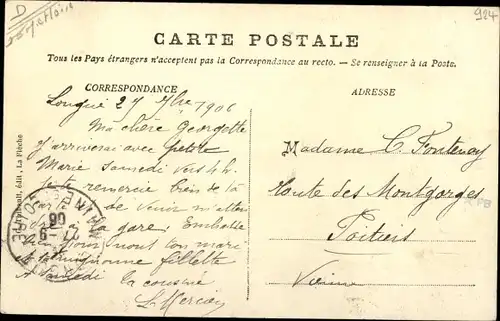 D
924
CARTE POSTALE
Tous les Pays étrangers n'acceptent pas la Correspondance au recto. — Se renseigner à la Poste.
CORRESPONDANCE
ADRESSE
Longué 27 7bre 1906
Ma chère Georgette
J'arriverai avec petite
Marie Samedi vers 4h.
remercie bien de la
de venir m'atten
la gare. Embrasse
bien pour nous ton mari
et ta mignonne fillette
A Samedi la cousine
L. Mercay
Madame C. Fontenay
Route des Montgorges
Poitiers
Vienne
édit., La Flèche